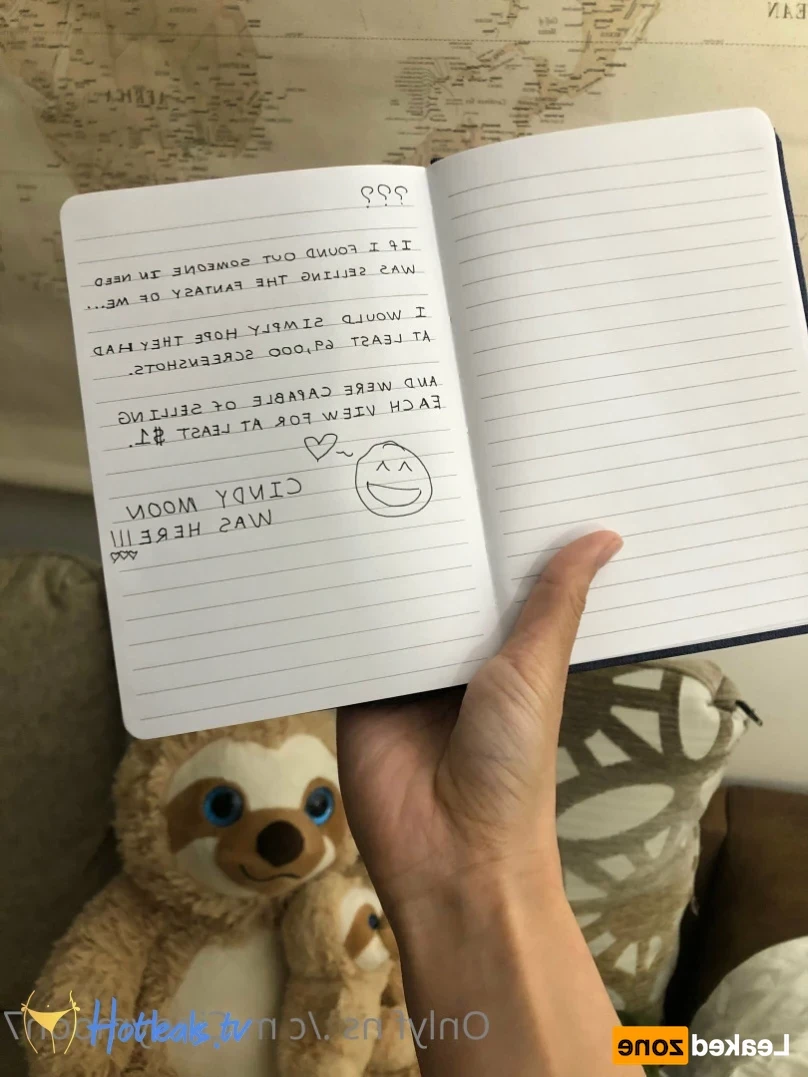 EAN
AFRICA
???
IF I FOUND OUT SOMEONE IN NEED
WAS SELLING THE FANTASY OF ME...
I WOULD SIMPLY HOPE THEY HAD
AT LEAST 69,000 SCREENSHOTS.
AND WERE CAPABLE OF SELLING
EACH VIEW FOR AT LEAST $1.
CINDY MOON
WAS HERE!!!
Hotleaks.tv
Leaked zone